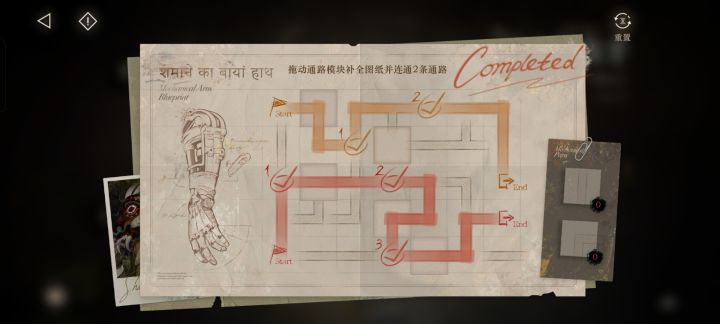 重置
शमाने का बायां हाथ
拖动通路模块补全图纸并连通2条通路
Completed
Mechanical Arm
Blueprint
Start
1
2
End
1
2
End
3
Start
0
0